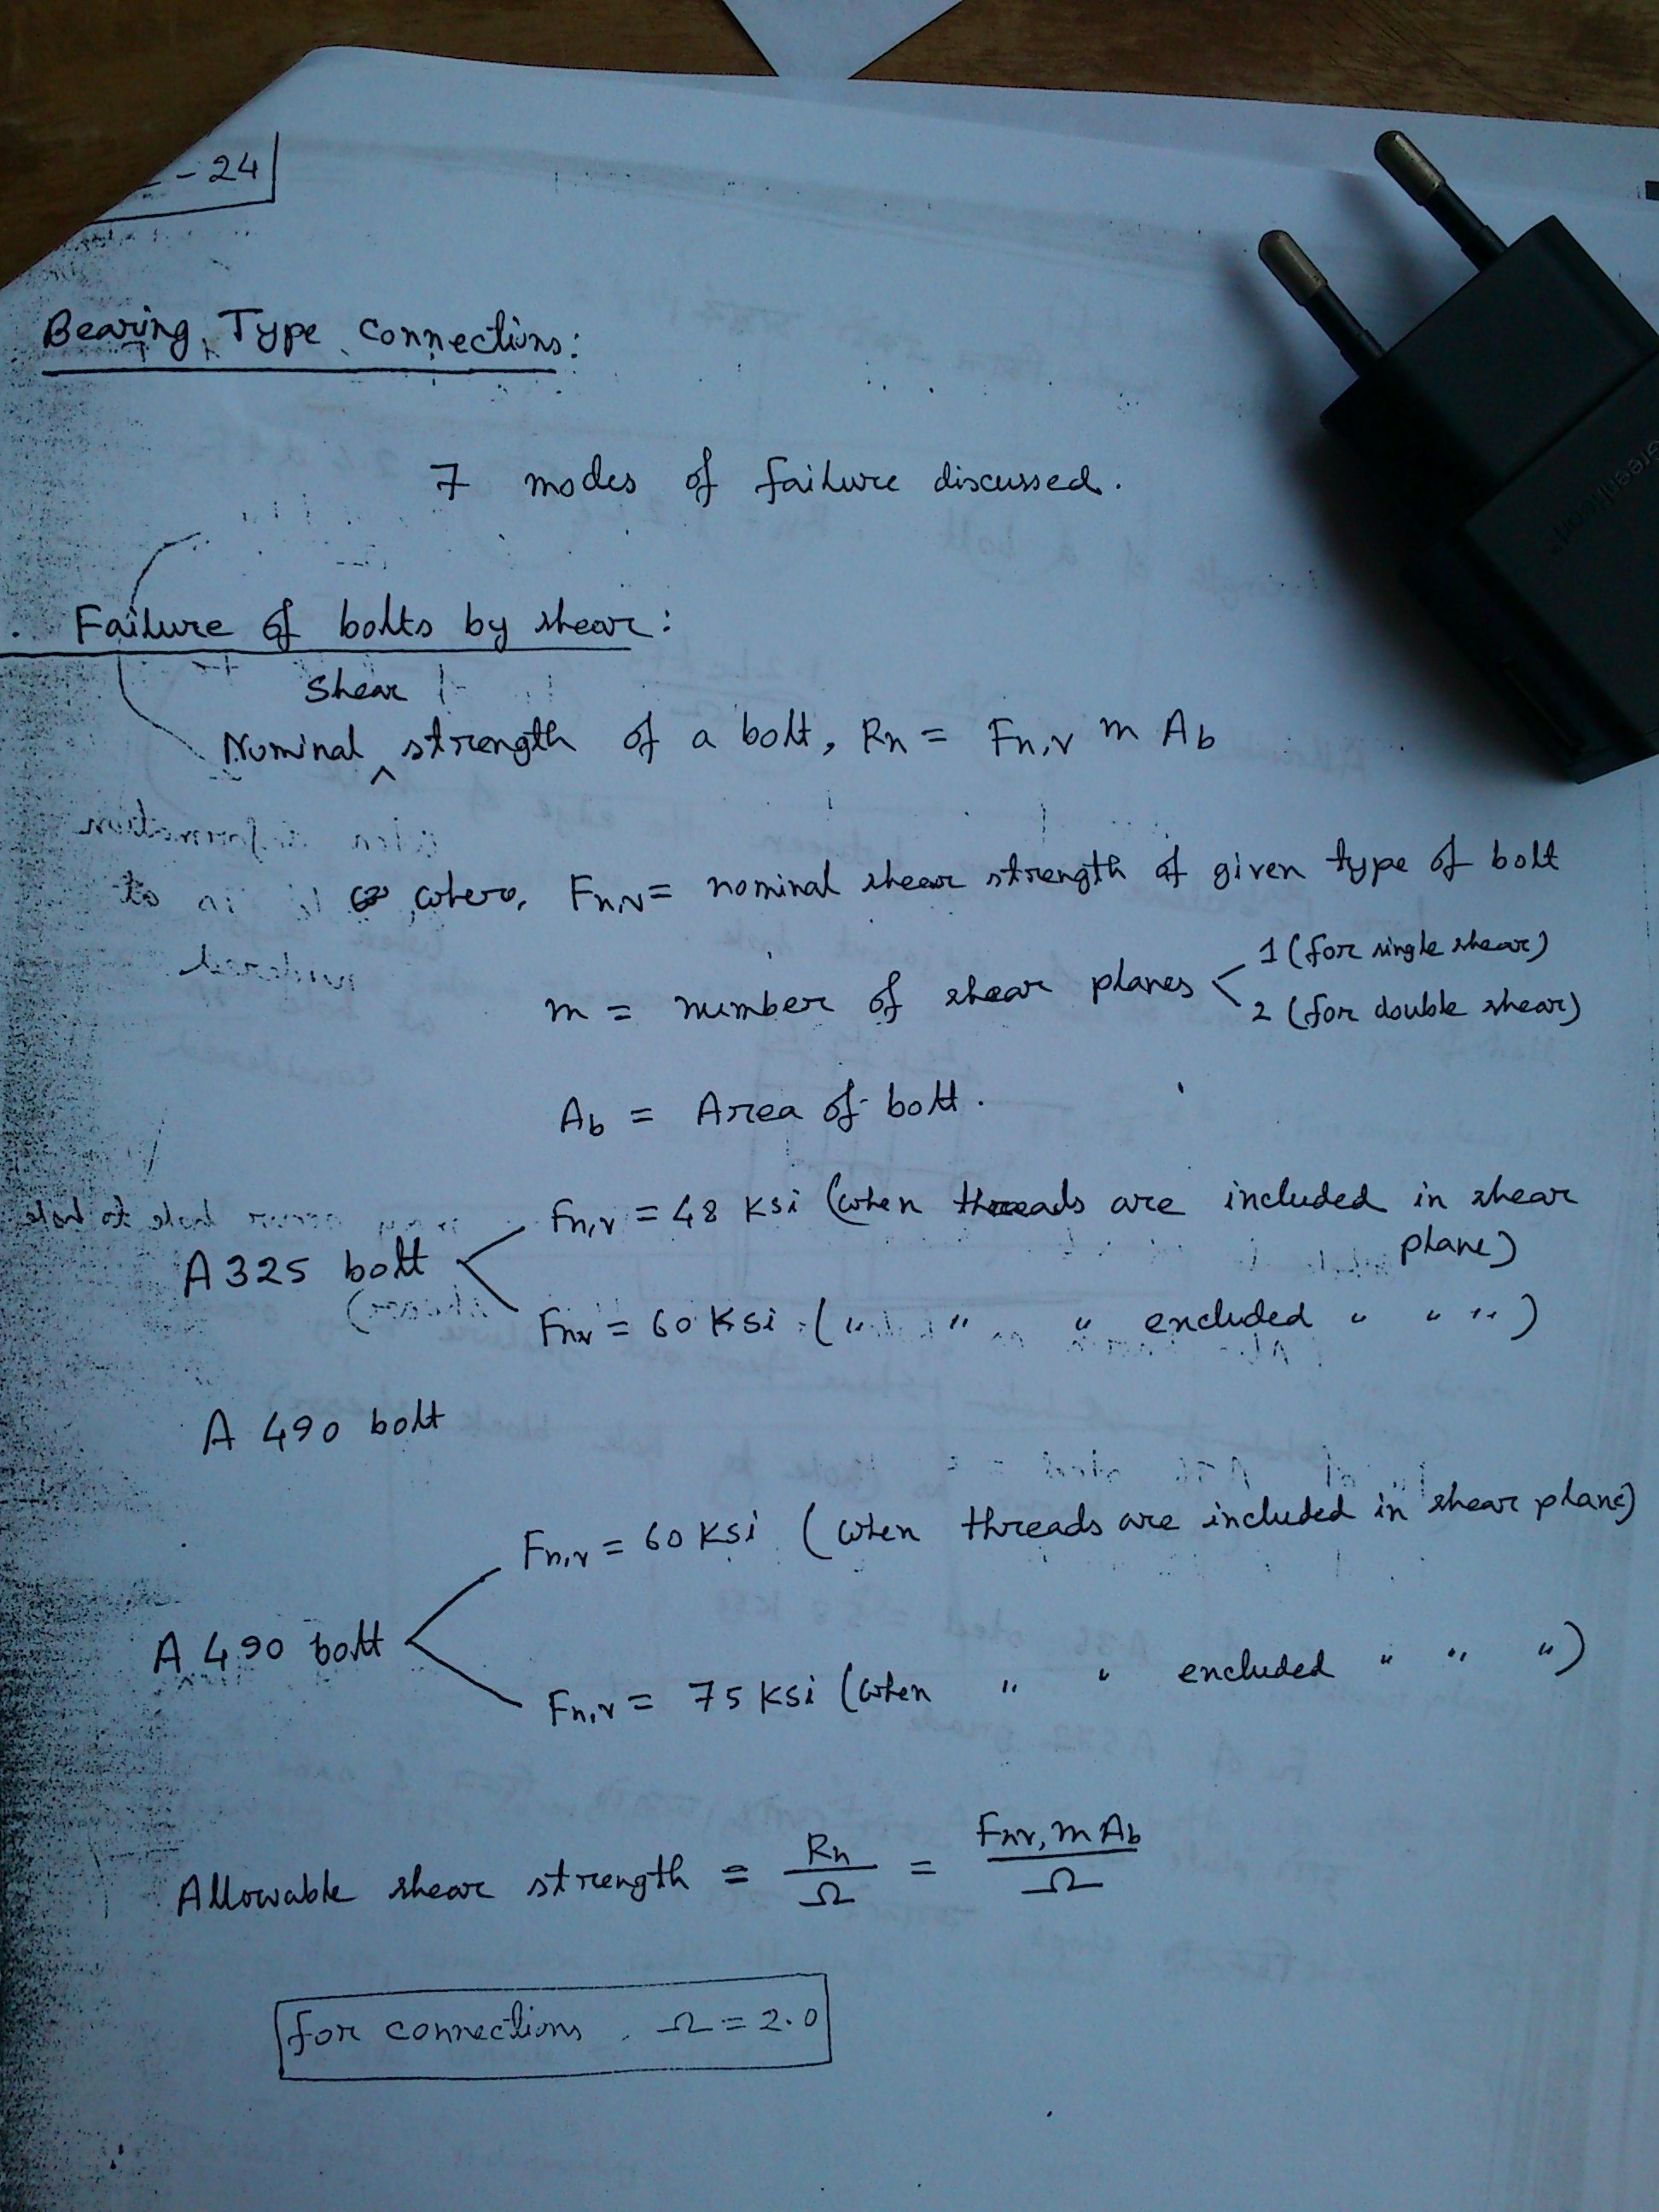 - 24
Bearing Type Connections:
7 modes of failure discussed.
Failure of bolts by shear:
Shear
Nominal ^ strength of a bolt, Rn = Fn,v m Ab
where, Fn,v = nominal shear strength of given type of bolt
m = number of shear planes < 1 (for single shear)
2 (for double shear)
Ab = Area of bolt.
Fn,v = 48 ksi (when threads are included in shear
plane)
A 325 bolt
Fnv = 60 ksi ( " " " excluded " " " )
A 490 bolt
Fn,v = 60 ksi (when threads are included in shear plane)
A 490 bolt
Fn,v = 75 ksi (when " " excluded " " ")
Allowable shear strength = Rn/Ω = Fnv, m Ab/Ω
for connections, Ω = 2.0